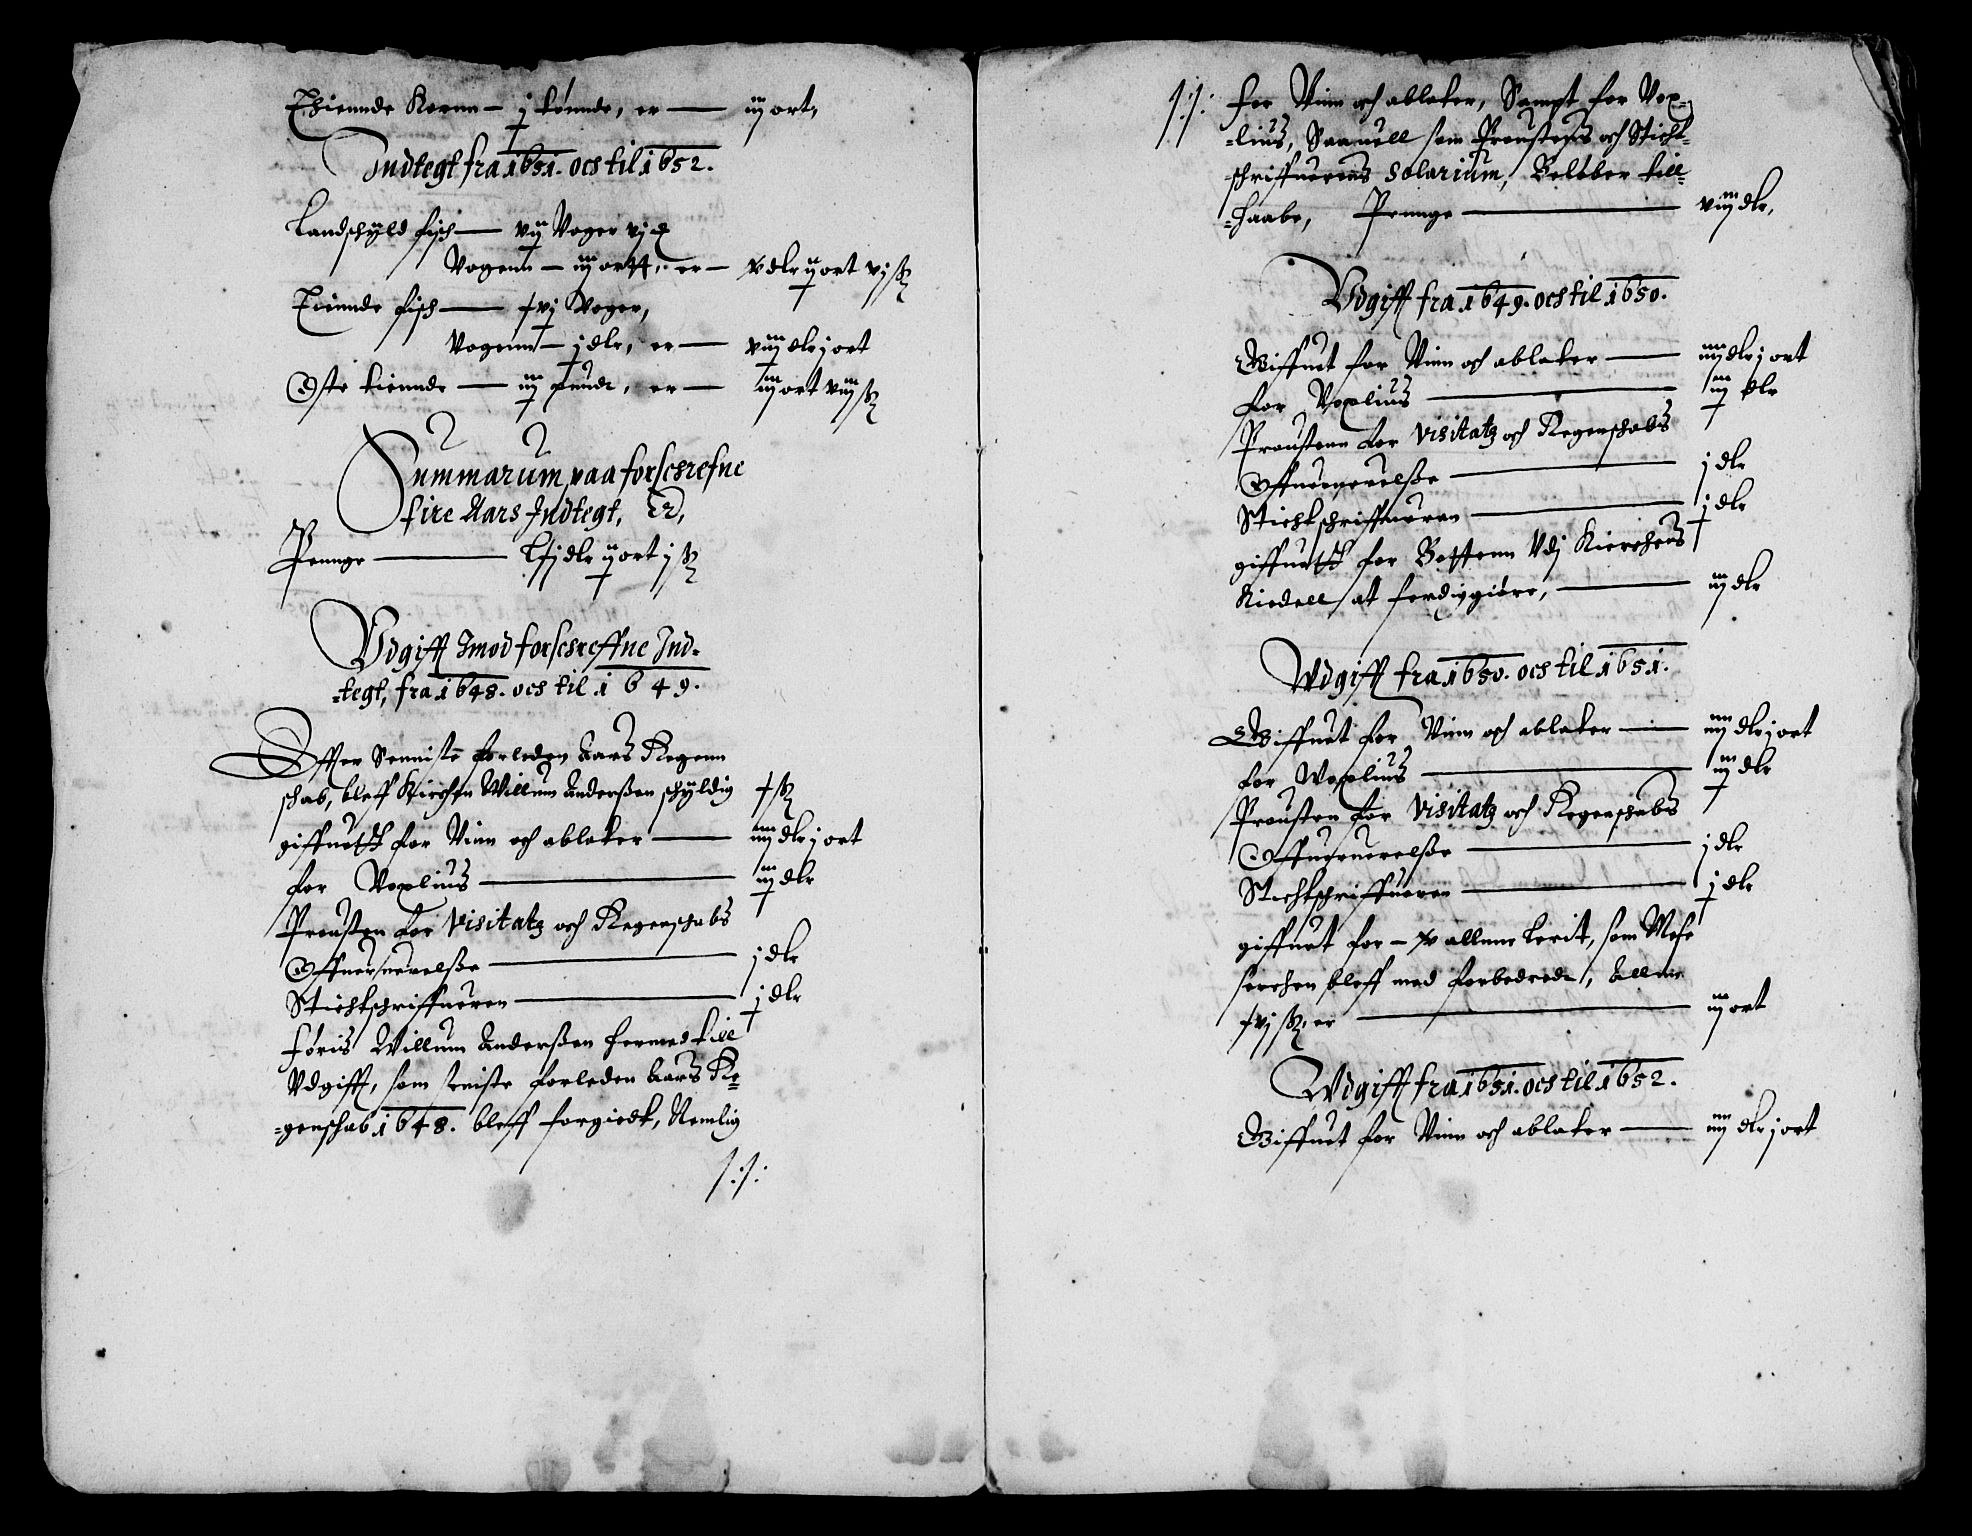 Thiennde Kornn – j tønnde, er — iij ort,
Indtegt fra 1651. och til 1652.
Landschyld fisch — vij Voger vj
Vogenn – iij ortt, er – v dlr ij ort vj ß
Tiennde fisch — Voger,
Vogenn – j dlr, er — viij dlr j ort
Oste tiennde — iij punde, er — iij ort viij ß
Summarum paa forschrefne
fire Aars Indtegt, Er,
Pennge — dlr ij ort j ß
Vdgifft Imod forschreffne Ind-
-tegt, fra 1648. och til 1649.
Effter Senniste forleden Aars Regenn
schab, bleff Kirchen Willum Anderßen schyldig ß
giffuet for Viin och ablater — iiij dlr j ort
for Voxlius — iij dlr
Prousten for Visitatz och Regenschabs
Offueruerelße — j dlr
Stichtschriffueren — j dlr
føris Willum Anderßen hermed till
Vdgifft, som seniste forleden Aars Re-
-genschab 1648. bleff forgiedt, Nemlig
/:/:
/:/: for Viin och ablater, Sampt for Vox-
-lius, Saauell som Proustens och Sticht-
schriffuerens Solarium, Beløber till-
-haabe, Pennge — viij dlr,
Vdgifft fra 1649. och til 1650.
Giffuet for Viin och ablater — iiij dlr j ort
for Voxlius — iij dlr
Proustenn for Visitatz och Regenschabs
Offueruerelße — j dlr
Stichtschriffueren — j dlr
giffuet for Vdj Kierchens
Kiedell at ferdiggiøre, — iij dlr
Wdgifft fra 1650. och til 1651.
Giffuet for Viin och ablater — iiij dlr j ort
for Woxlius — iij dlr
Prousten for Visitatz och Regenschabs
Offueruerelße — j dlr
Stichtschriffueren — j dlr
giffuet for – allne lerit, som Mese
serchen bleff med forbedrede, Allne
ß, er — iij ort
Wdgifft fra 1651. och til 1652.
Giffuet for Viin och ablater — iiij dlr j ort